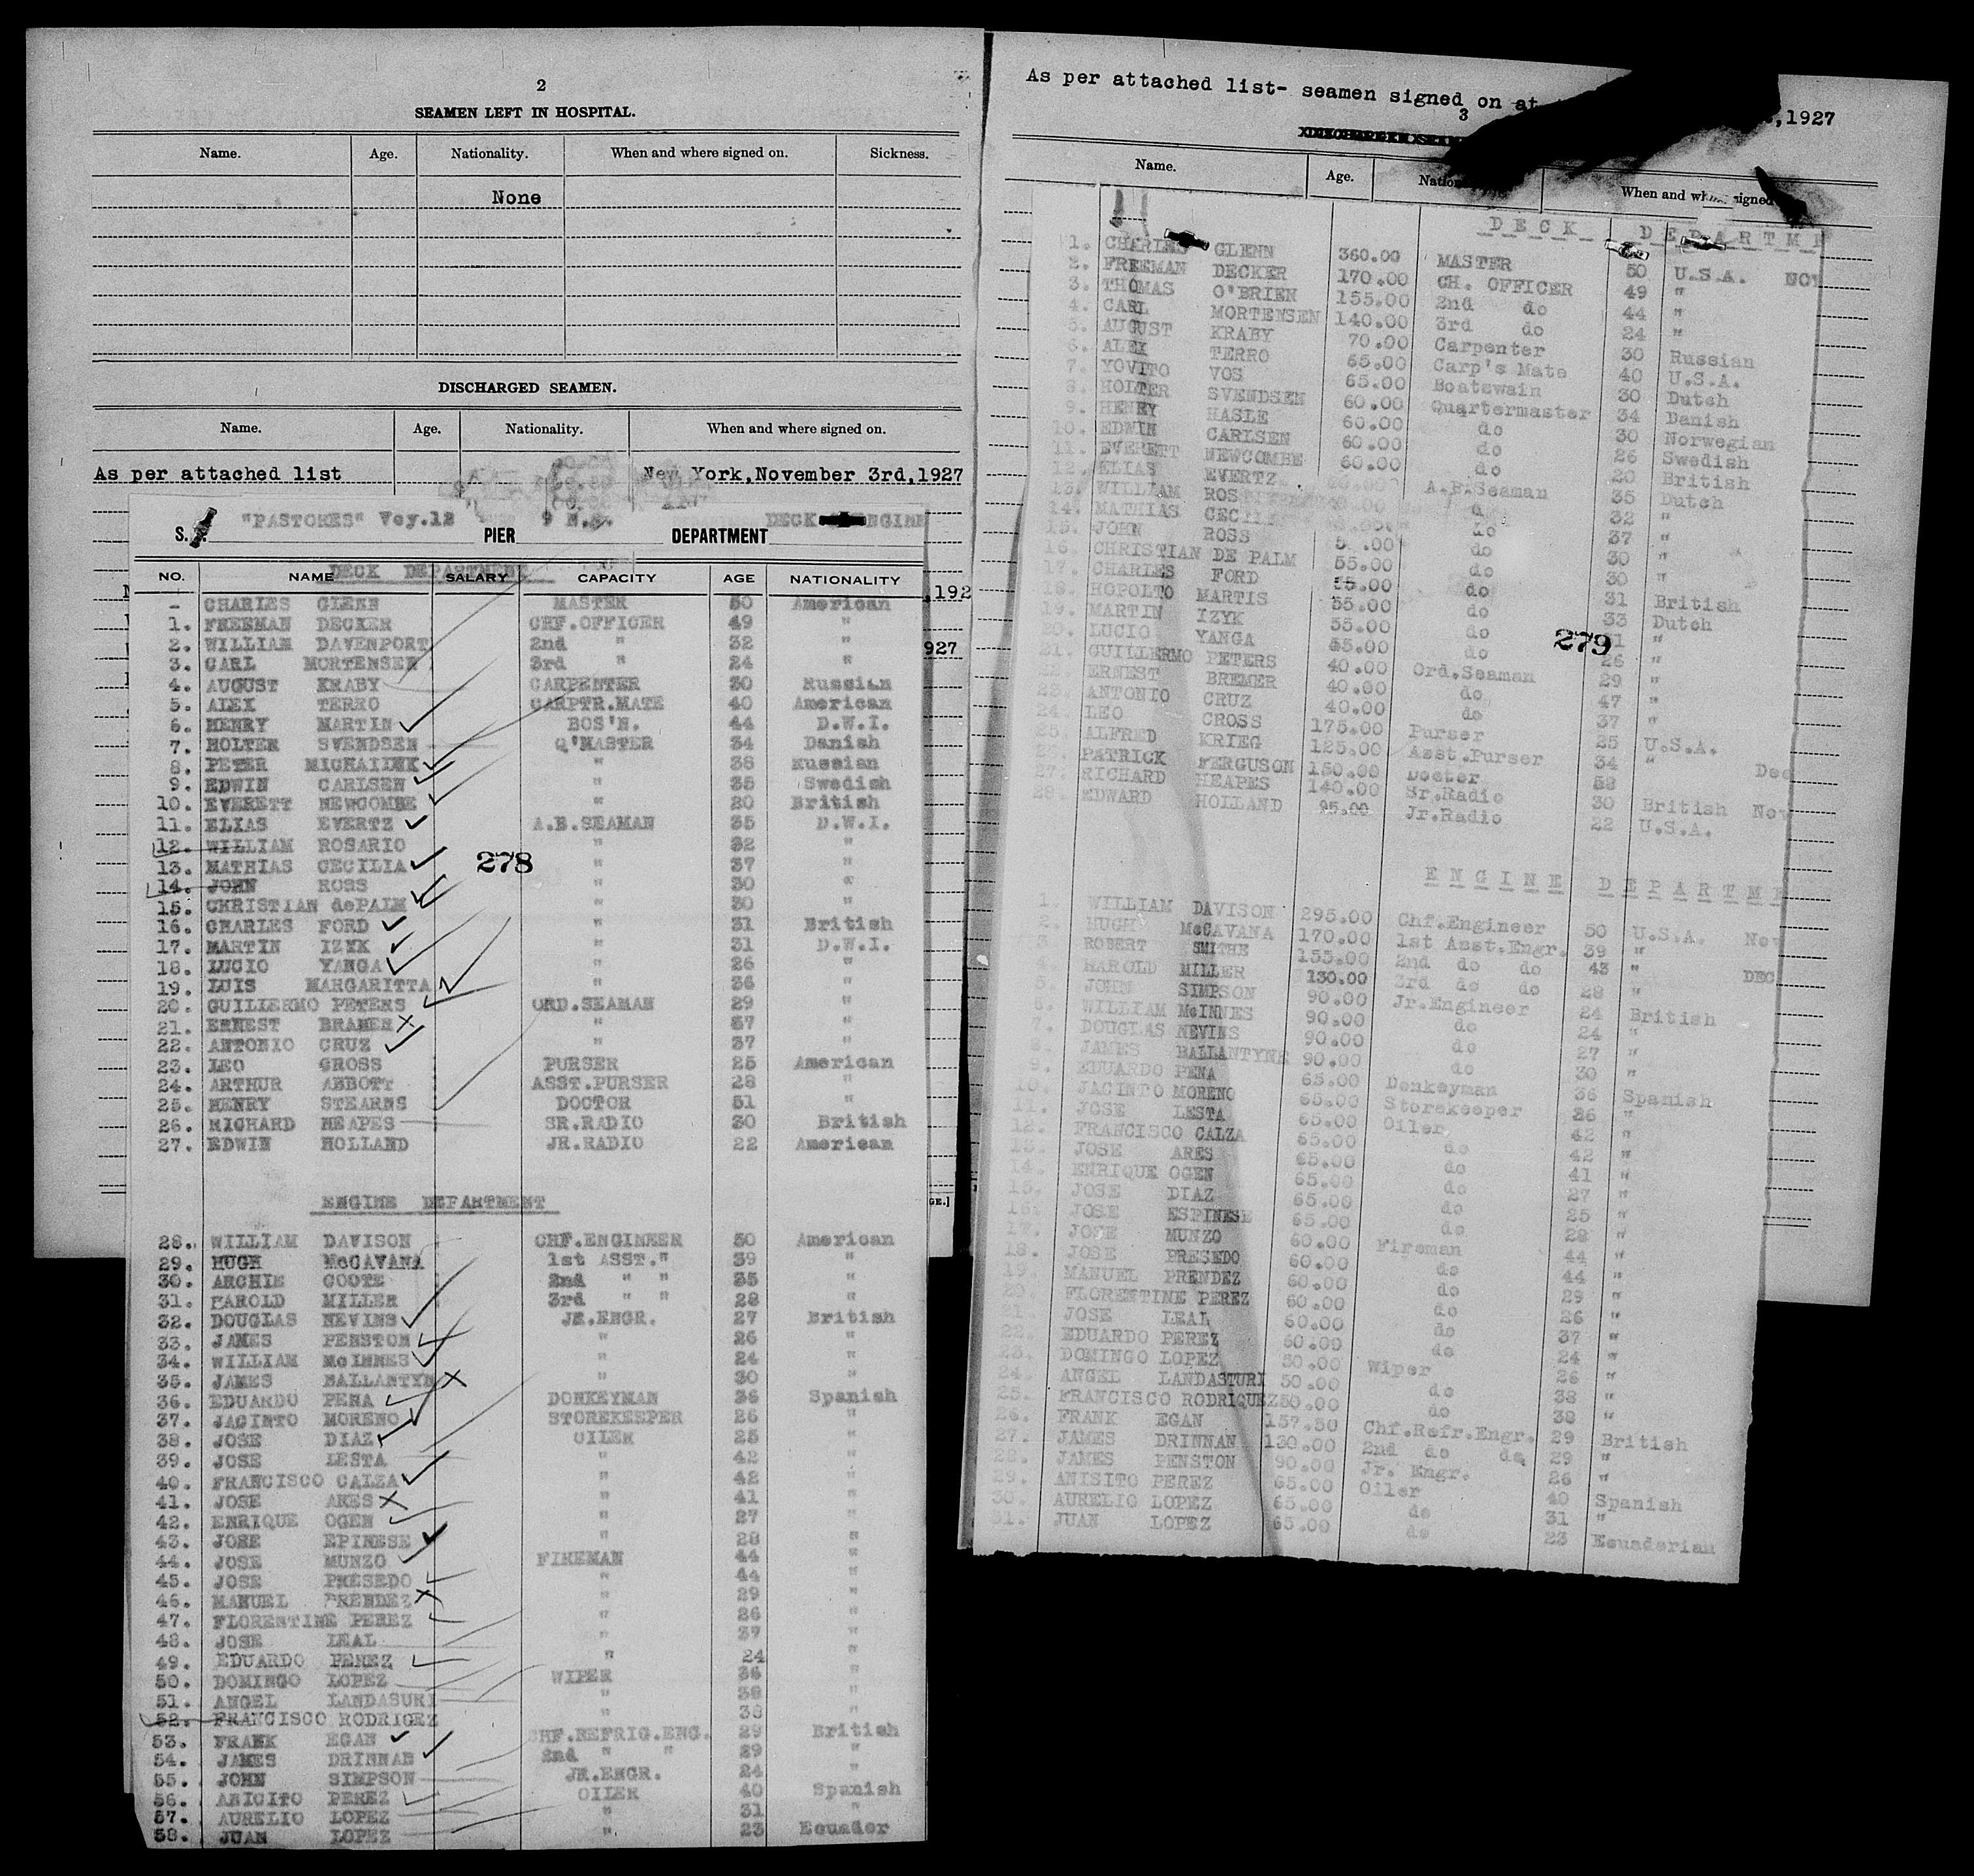 2
SEAMEN LEFT IN HOSPITAL.
Name. Age. Nationality. When and where signed on. Sickness.
None
DISCHARGED SEAMEN.
Name. Age. Nationality. When and where signed on.
As per attached list New York,November 3rd,1927
"PASTORES" Voy.12 9 N.R. DECK ENGINE
S. PIER DEPARTMENT
NO. NAME SALARY CAPACITY AGE NATIONALITY
DECK DEPARTMENT
,192
- CHARLES GLENN MASTER 50 American
1. FREEMAN DECKER CHF.OFFICER 49 "
2. WILLIAM DAVENPORT 2nd " 32 "
927
3. CARL MORTENSEN 3rd " 24 "
4. AUGUST KRABY CARPENTER 30 Russian
5. ALEX TERRO CARPTR.MATE 40 American
6. HENRY MARTIN BOS'N. 44 D.W.I.
7. HOLTER SVENDSEN Q'MASTER 34 Danish
8. PETER MICHAILNK " 38 Russian
9. EDWIN CARLSEN " 35 Swedish
10. EVERETT NEWCOMBE " 20 British
11. ELIAS EVERTZ A.B.SEAMAN 35 D.W.I.
12. WILLIAM ROSARIO " 32 "
13. MATHIAS CECILIA " 37 "
278
14. JOHN ROSS " 30 "
15. CHRISTIAN dePALM " 30 "
16. CHARLES FORD " 31 British
17. MARTIN IZYK " 31 D.W.I.
18. LUCIO YANGA " 26 "
19. LUIS MARGARITTA " 36 "
20. GUILLERMO PETERS ORD.SEAMAN 29 "
21. ERNEST BRAMER " 37 "
22. ANTONIO CRUZ " 37 "
23. LEO GROSS PURSER 25 American
24. ARTHUR ABBOTT ASST.PURSER 28 "
25. HENRY STEARNS DOCTOR 51 "
26. RICHARD HEAPES SR.RADIO 30 British
27. EDWIN HOLLAND JR.RADIO 22 American
ENGINE DEPARTMENT
GE.]
28. WILLIAM DAVISON CHF.ENGINEER 50 American
29. HUGH McCAVANA 1st ASST." 39 "
30. ARCHIE COOTE 2nd " " 35 "
31. HAROLD MILLER 3rd " " 28 "
32. DOUGLAS NEVINS JR.ENGR. 27 British
33. JAMES PENSTON " 26 "
34. WILLIAM McINNES " 24 "
35. JAMES BALLANTYN " 30 "
36. EDUARDO PENA DONKEYMAN 36 Spanish
37. JACINTO MORENO STOREKEEPER 26 "
38. JOSE DIAZ OILER 25 "
39. JOSE LESTA " 42 "
40. FRANCISCO CALZA " 42 "
41. JOSE ARES " 41 "
42. ENRIQUE OGEN " 27 "
43. JOSE EPINESE " 28 "
44. JOSE MUNZO FIREMAN 44 "
45. JOSE PRESEDO " 44 "
46. MANUEL PRENDEZ " 29 "
47. FLORENTINE PEREZ " 26 "
48. JOSE LEAL " 37 "
49. EDUARDO PEREZ " 24 "
50. DOMINGO LOPEZ WIPER 36 "
51. ANGEL LANDASURI " 38 "
52. FRANCISCO RODRIGEZ " 38 "
53. FRANK EGAN CHF.REFRIG.ENG. 29 British
54. JAMES DRINNAN 2nd " " 29 "
55. JOHN SIMPSON JR.ENGR. 24 "
56. ANICITO PEREZ OILER 40 Spanish
57. AURELIO LOPEZ " 31 "
58. JUAN LOPEZ " 23 Ecuador
As per attached list- seamen signed on at ,1927
3
Name. Age. When and signed
DECK DEPARTME
1. CHARLES GLENN 360.00 MASTER 50 U.S.A. NOV
2. FREEMAN DECKER 170.00 CH. OFFICER 49 "
3. THOMAS O'BRIEN 155.00 2nd do 44 "
4. CARL MORTENSEN 140.00 3rd do 24 "
5. AUGUST KRABY 70.00 Carpenter 30 Russian
6. ALEX TERRO 65.00 Carp's Mate 40 U.S.A.
7. YOVITO VOS 65.00 Boatswain 30 Dutch
8. HOLTER SVENDSEN 60.00 Quartermaster 34 Danish
9. HENRY HASLE 60.00 do 30 Norwegian
10. EDWIN CARLSEN 60.00 do 26 Swedish
11. EVERETT NEWCOMBE 60.00 do 20 British
12. ELIAS EVERTZ A.B.Seaman 35 Dutch
13. WILLIAM ROS 32 "
14. MATHIAS CECILI do 37 "
15. JOHN ROSS .00 do 30 "
16. CHRISTIAN DE PALM 55.00 do 30 "
17. CHARLES FORD 55.00 do 31 British
18. HOPOLTO MARTIS 55.00 do 33 Dutch
19. MARTIN IZYK 55.00 do 31 "
279
20. LUCIO YANGA 55.00 do 26 "
21. GUILLERMO PETERS 40.00 Ord.Seaman 29 "
22. ERNEST BREMER 40.00 do 47 "
23. ANTONIO CRUZ 40.00 do 37 "
24. LEO CROSS 175.00 Purser 25 U.S.A.
25. ALFRED KRIEG 125.00 Asst.Purser 34 " Dec
26. PATRICK FERGUSON 150.00 Doctor 58
27. RICHARD HEAPES 140.00 Sr.Radio 30 British Nov
28. EDWARD HOLLAND 95.00 Jr.Radio 22 U.S.A.
ENGINE DEPARTME
1. WILLIAM DAVISON 295.00 Chf.Engineer 50 U.S.A. Nov
2. HUGH McCAVANA 170.00 1st Asst.Engr. 39 "
3. ROBERT SMITHE 155.00 2nd do do 43 " DEC
4. HAROLD MILLER 130.00 3rd do do 28 "
5. JOHN SIMPSON 90.00 Jr.Engineer 24 British
6. WILLIAM McINNES 90.00 do 24 "
7. DOUGLAS NEVINS 90.00 do 27 "
8. JAMES BALLANTYNE 90.00 do 30 "
9. EDUARDO PENA 65.00 Donkeyman 36 Spanish
10. JACINTO MORENO 65.00 Storekeeper 26 "
11. JOSE LESTA 65.00 Oiler 42 "
12. FRANCISCO CALZA 65.00 do 42 "
13. JOSE ARES 65.00 do 41 "
14. ENRIQUE OGEN 65.00 do 27 "
15. JOSE DIAZ 65.00 do 25 "
16. JOSE ESPINESE 65.00 do 28 "
17. JOSE MUNZO 60.00 Fireman 44 "
18. JOSE PRESEDO 60.00 do 44 "
19. MANUEL PRENDEZ 60.00 do 29 "
20. FLORENTINE PEREZ 60.00 do 26 "
21. JOSE LEAL 60.00 do 37 "
22. EDUARDO PEREZ 60.00 do 24 "
23. DOMINGO LOPEZ 50.00 Wiper 26 "
24. ANGEL LANDASTURI 50.00 do 38 "
25. FRANCISCO RODRIQUEZ 50.00 do 38 "
26. FRANK EGAN 157.50 Chf.Refr.Engr. 29 British
27. JAMES DRINNAN 130.00 2nd do do 29 "
28. JAMES PENSTON 90.00 Jr. Engr. 26 "
29. ANISITO PEREZ 65.00 Oiler 40 Spanish
30. AURELIO LOPEZ 65.00 do 31 "
31. JUAN LOPEZ 65.00 do 23 Ecuadorian